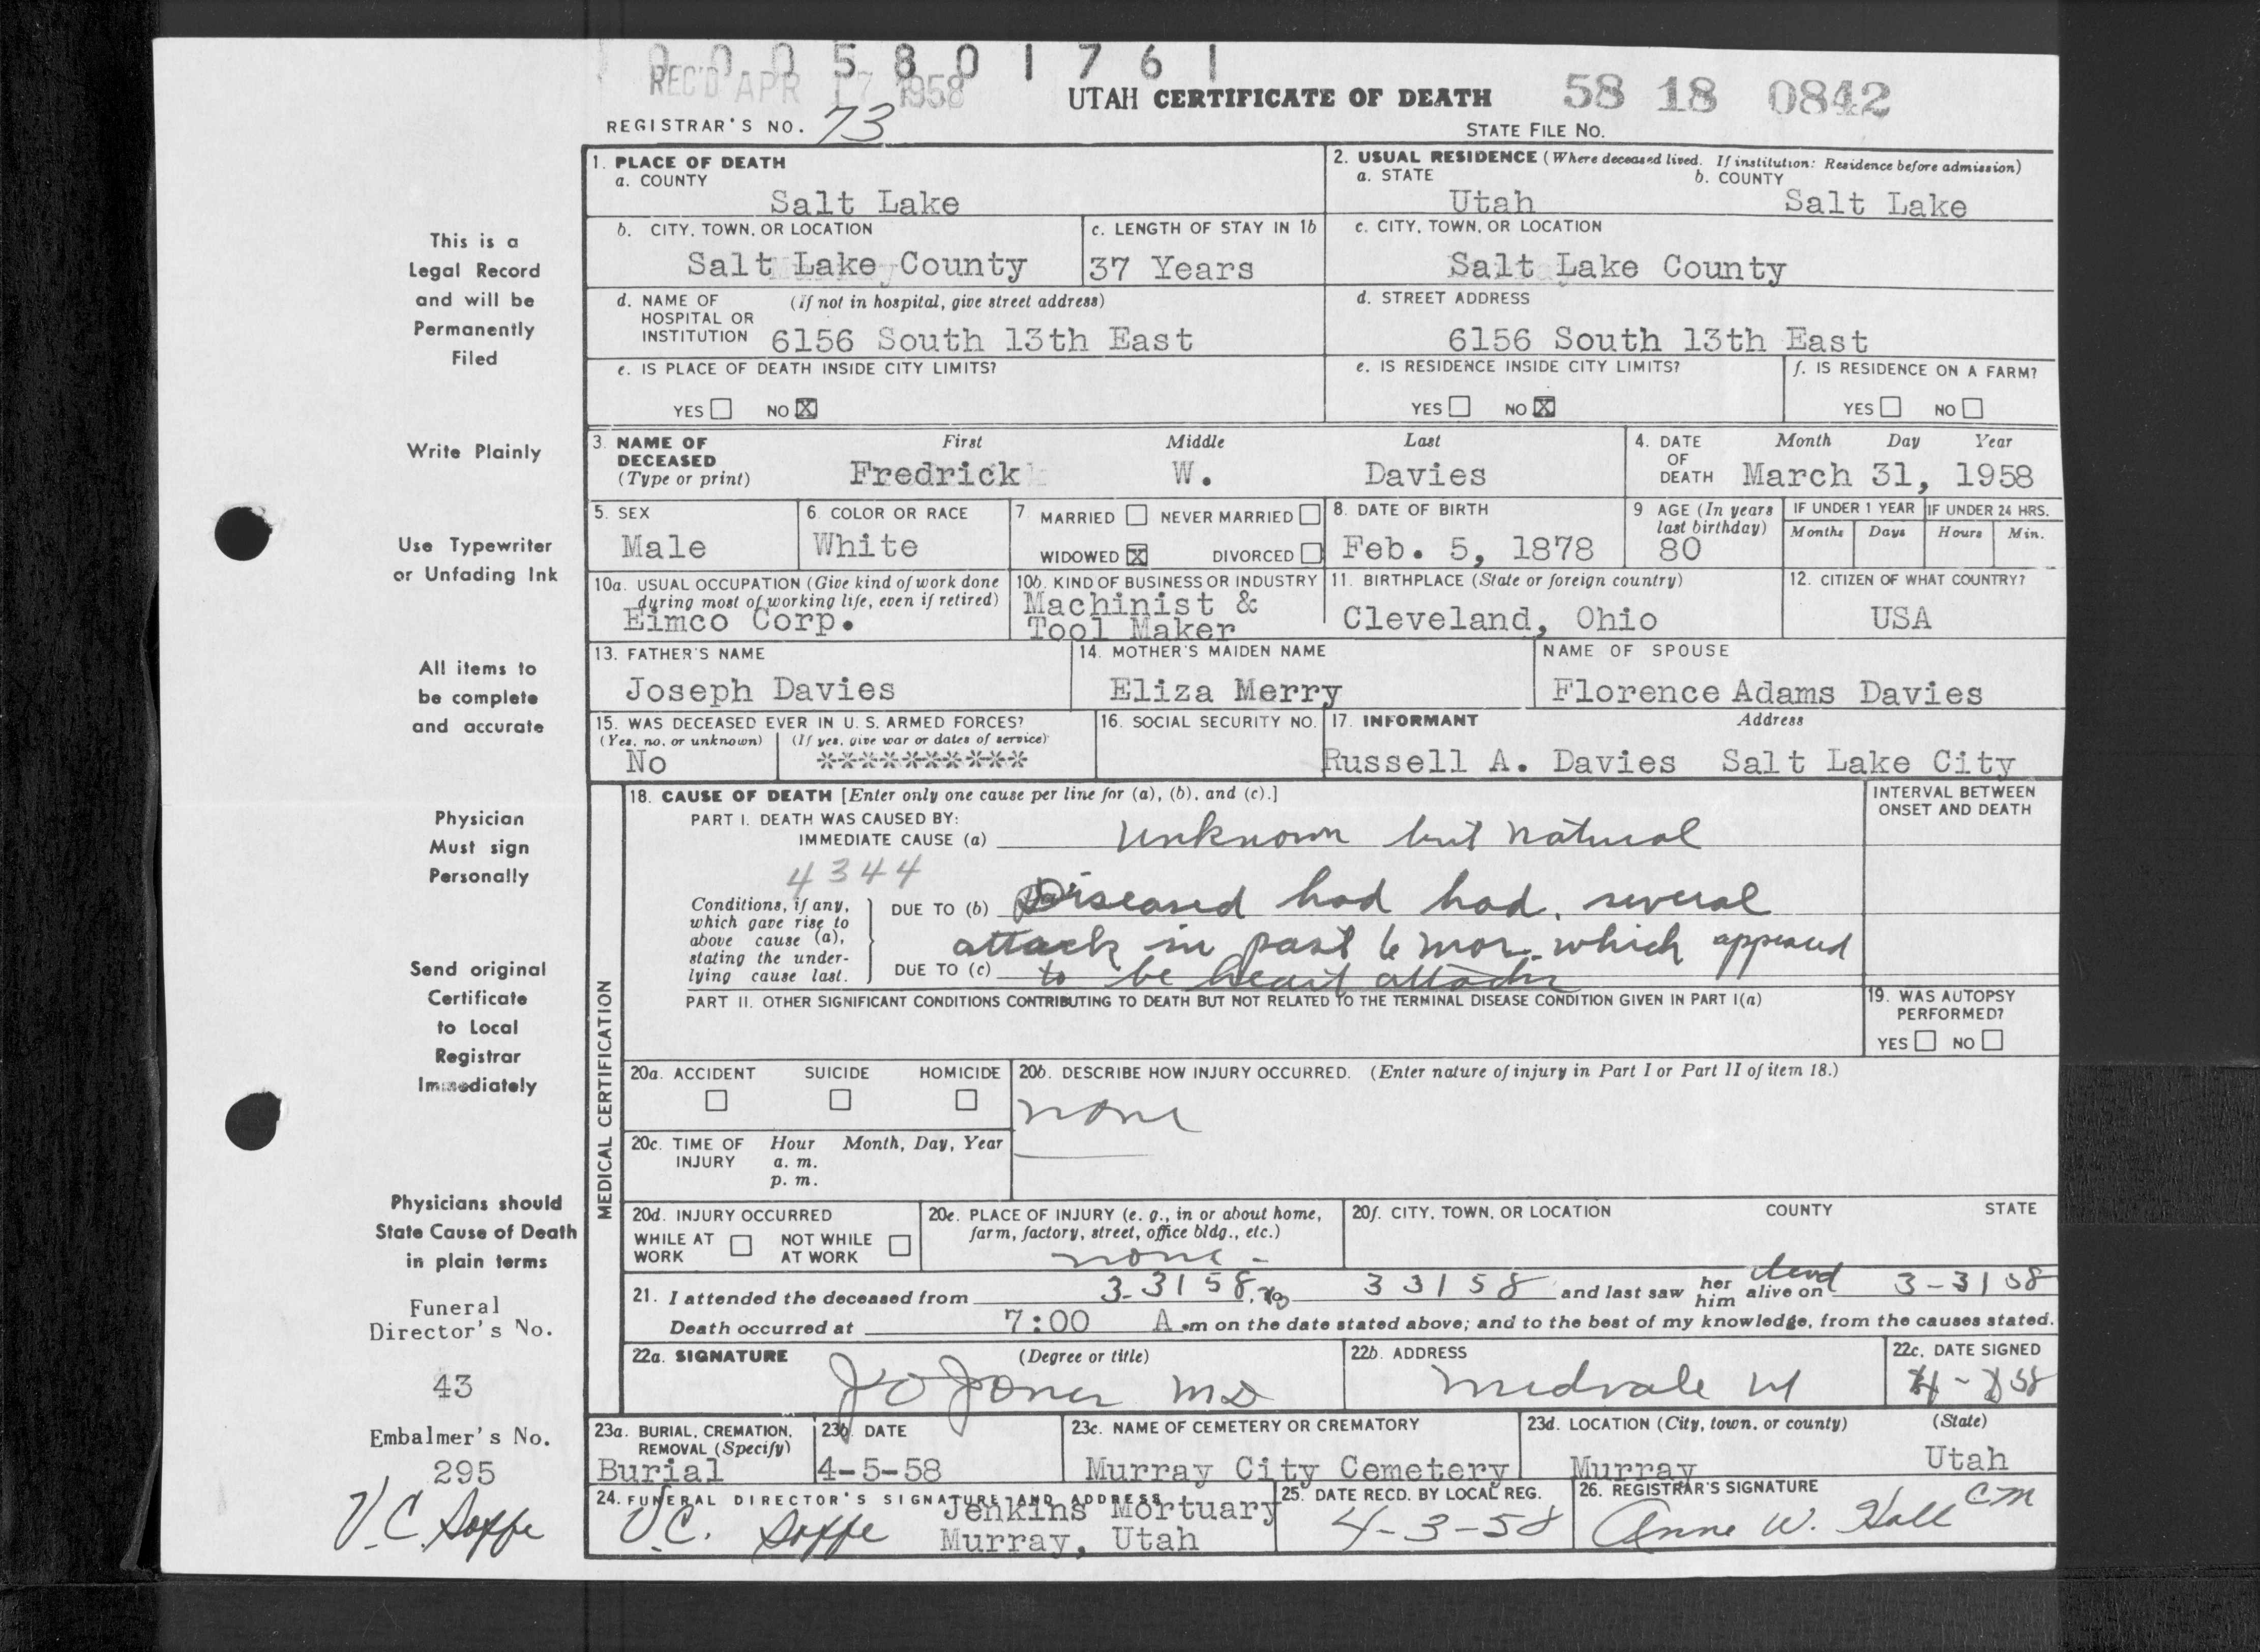 0005801761
REC'D APR 17 1958
UTAH CERTIFICATE OF DEATH
58 18 0842
REGISTRAR'S NO. 73
STATE FILE NO.
1. PLACE OF DEATH
a. COUNTY
Salt Lake
2. USUAL RESIDENCE (Where deceased lived. If institution: Residence before admission)
a. STATE b. COUNTY
Utah Salt Lake
b. CITY, TOWN, OR LOCATION
Salt Lake County
c. LENGTH OF STAY IN 1b
37 Years
c. CITY, TOWN, OR LOCATION
Salt Lake County
d. NAME OF HOSPITAL OR INSTITUTION (If not in hospital, give street address)
6156 South 13th East
d. STREET ADDRESS
6156 South 13th East
e. IS PLACE OF DEATH INSIDE CITY LIMITS?
YES NO X
e. IS RESIDENCE INSIDE CITY LIMITS?
YES NO X
f. IS RESIDENCE ON A FARM?
YES NO
3. NAME OF DECEASED (Type or print)
First Middle Last
Fredrick W. Davies
4. DATE OF DEATH Month Day Year
March 31, 1958
5. SEX
Male
6. COLOR OR RACE
White
7 MARRIED NEVER MARRIED
WIDOWED X DIVORCED
8. DATE OF BIRTH
Feb. 5, 1878
9 AGE (In years last birthday)
80
IF UNDER 1 YEAR IF UNDER 24 HRS.
Months Days Hours Min.
10a. USUAL OCCUPATION (Give kind of work done during most of working life, even if retired)
Eimco Corp.
10b. KIND OF BUSINESS OR INDUSTRY
Machinist &
Tool Maker
11. BIRTHPLACE (State or foreign country)
Cleveland, Ohio
12. CITIZEN OF WHAT COUNTRY?
USA
13. FATHER'S NAME
Joseph Davies
14. MOTHER'S MAIDEN NAME
Eliza Merry
NAME OF SPOUSE
Florence Adams Davies
15. WAS DECEASED EVER IN U. S. ARMED FORCES?
(Yes, no, or unknown) (If yes, give war or dates of service)
No **********
16. SOCIAL SECURITY NO.
17. INFORMANT Address
Russell A. Davies Salt Lake City
MEDICAL CERTIFICATION
18. CAUSE OF DEATH [Enter only one cause per line for (a), (b), and (c).]
INTERVAL BETWEEN ONSET AND DEATH
PART I. DEATH WAS CAUSED BY:
IMMEDIATE CAUSE (a) Unknown but natural
4344
Conditions, if any, which gave rise to above cause (a), stating the underlying cause last.
DUE TO (b) Diseased had had several
attack in past 6 mos. which appeared
DUE TO (c) to be heart attacks
PART II. OTHER SIGNIFICANT CONDITIONS CONTRIBUTING TO DEATH BUT NOT RELATED TO THE TERMINAL DISEASE CONDITION GIVEN IN PART I(a)
19. WAS AUTOPSY PERFORMED?
YES NO
20a. ACCIDENT SUICIDE HOMICIDE
20b. DESCRIBE HOW INJURY OCCURRED. (Enter nature of injury in Part I or Part II of item 18.)
none
20c. TIME OF INJURY Hour Month, Day, Year
a. m.
p. m.
20d. INJURY OCCURRED
WHILE AT WORK NOT WHILE AT WORK
20e. PLACE OF INJURY (e. g., in or about home, farm, factory, street, office bldg., etc.)
none -
20f. CITY, TOWN, OR LOCATION COUNTY STATE
21. I attended the deceased from 3-31 58, to 3 31 58 and last saw her him alive on dead 3-31 58
Death occurred at 7:00 A.m on the date stated above; and to the best of my knowledge, from the causes stated.
22a. SIGNATURE (Degree or title)
J O Jones MD
22b. ADDRESS
Midvale Ut
22c. DATE SIGNED
23a. BURIAL, CREMATION, REMOVAL (Specify)
Burial
23b. DATE
4-5-58
23c. NAME OF CEMETERY OR CREMATORY
Murray City Cemetery
23d. LOCATION (City, town, or county) (State)
Murray Utah
24. FUNERAL DIRECTOR'S SIGNATURE AND ADDRESS
V.C. Soffe Jenkins Mortuary
Murray, Utah
25. DATE RECD. BY LOCAL REG.
4-3-58
26. REGISTRAR'S SIGNATURE
Anne W. Hall CM
This is a
Legal Record
and will be
Permanently
Filed
Write Plainly
Use Typewriter
or Unfading Ink
All items to
be complete
and accurate
Physician
Must sign
Personally
Send original
Certificate
to Local
Registrar
Immediately
Physicians should
State Cause of Death
in plain terms
Funeral
Director's No.
43
Embalmer's No.
295
V.C. Soffe